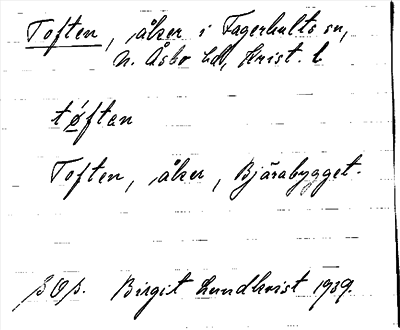 Toften, åker i Fagerhults sn,
N. Åsbo hd, Krist. l
tøftən
Toften, åker, Bjärabygget.
Birgit Lundkvist 1939.